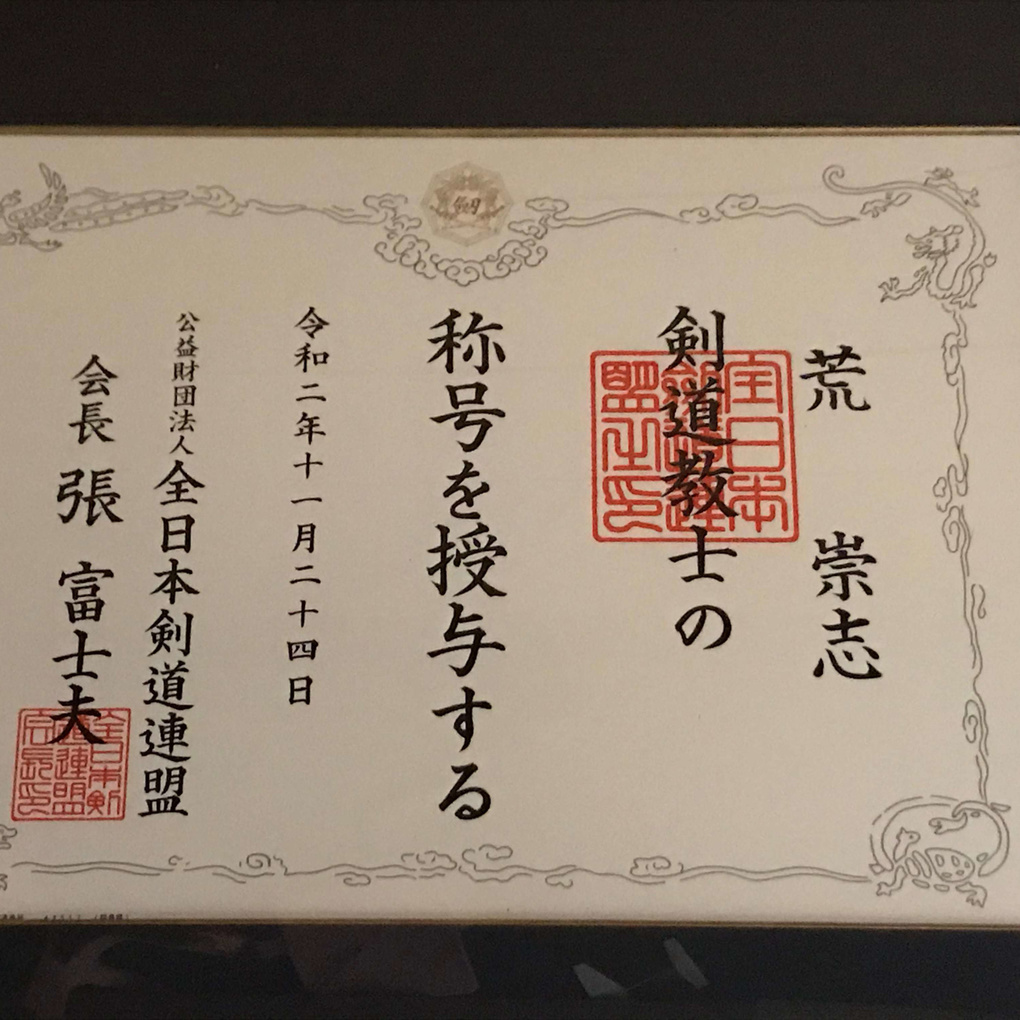 荒 崇志
剣道教士の
称号を授与する
令和二年十一月二十四日
公益財団法人全日本剣道連盟
会長 張 富士夫
全日本剣
道連盟
会長印